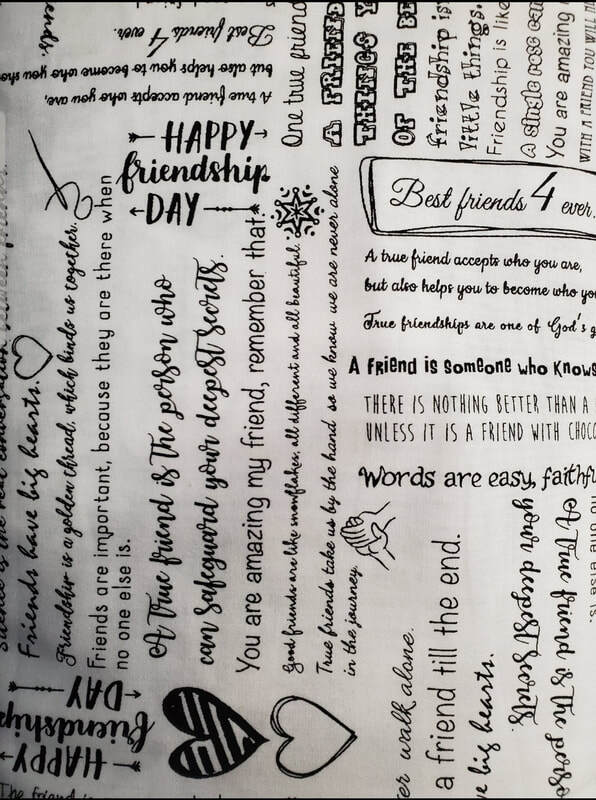 ends.
Best friends 4 ever.
but also helps you to become who you
A true friend accepts who you are,
HAPPY
friendship
DAY
One true friend
A FRIEND
THINGS Y
OF THE BE
friendship is
little things.
Friendship is like
A single rose can
You are amazing
WITH A FRIEND YOU WILL
Best friends 4 ever.
A true friend accepts who you are,
but also helps you to become who yo
True friendships are one of God's g
A friend is someone who knows
THERE IS NOTHING BETTER THAN A
UNLESS IT IS A FRIEND WITH CHOCO
Words are easy, faithfu
Silence is the real conversation between friends.
Friends have big hearts.
Friendship is a golden thread, which binds us together.
Friends are important, because they are there when
no one else is.
A true friend is the person who
can safeguard your deepest secrets.
You are amazing my friend, remember that.
Good friends are like snowflakes, all different and all beautiful.
True friends take us by the hand so we know we are never alone
in the journey.
er walk alone.
a friend till the end.
e big hearts.
A true friend is the perso
your deepest secrets.
no one else is.
HAPPY
friendship
DAY
The friend is